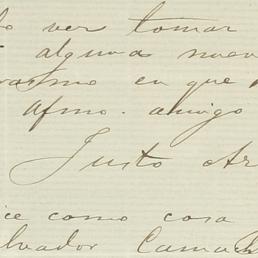 lo ver tomar
alguna nuev
en que
afmo. amigo
Justo Ar
ice como cosa
lvador Camach